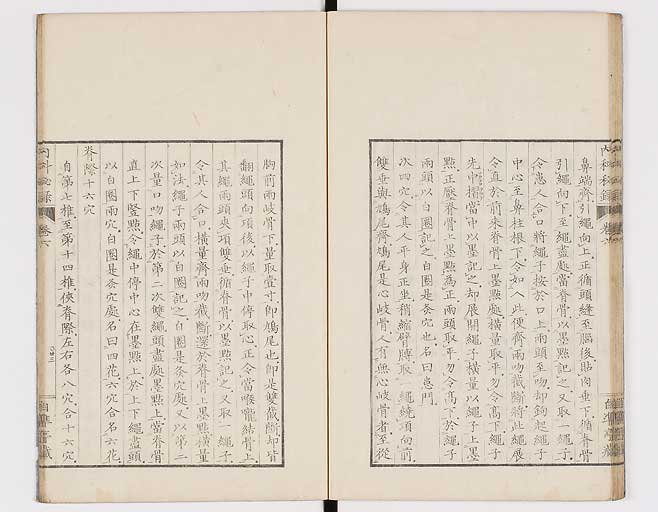 內科秘錄 卷六
鼻端齊引繩向上正循頭縫至腦後貼肉垂下循脊骨
引繩向下至繩盡處當脊骨以墨點記之又取一繩子
令患人合口將繩子按於口上兩頭至吻却鉤起繩子
中心至鼻柱根下令如人此便齊兩吻截斷將此繩展
令直於前来脊骨上墨點處橫量取平勿令高下繩子
先中摺當中以墨記之却展開繩子橫量以繩子上墨
點正壓脊骨上墨點為正兩頭取平勿令高下於繩子
兩頭以白圈記之白圈是灸穴也名曰患門
次四穴令其人平身正坐稍縮臂膊取一繩繞項向前
雙垂與鳩尾齊鳩尾是心岐骨人有無心岐骨者至從
胸前兩岐骨下量取壹寸卽鳩尾也卽是雙截斷却背
翻繩頭向項後以繩子中停取心正令當喉嚨結骨上
其繩兩頭夾項雙垂循脊骨以墨點記之又取一繩子
令其人合口橫量齊兩吻截斷還於脊骨上墨點橫量
如法繩子兩頭以白圈記之白圈是灸穴處又以第二
次量口吻繩子於第二次雙繩頭盡處墨點上當脊骨
直上下竪點令繩中停中心在墨點上於上下繩盡頭
以白圈兩穴白圈是灸穴處名曰四花六穴合名六花
脊際十六穴
自第七椎至第十四椎俠脊際左右各八穴合十六穴